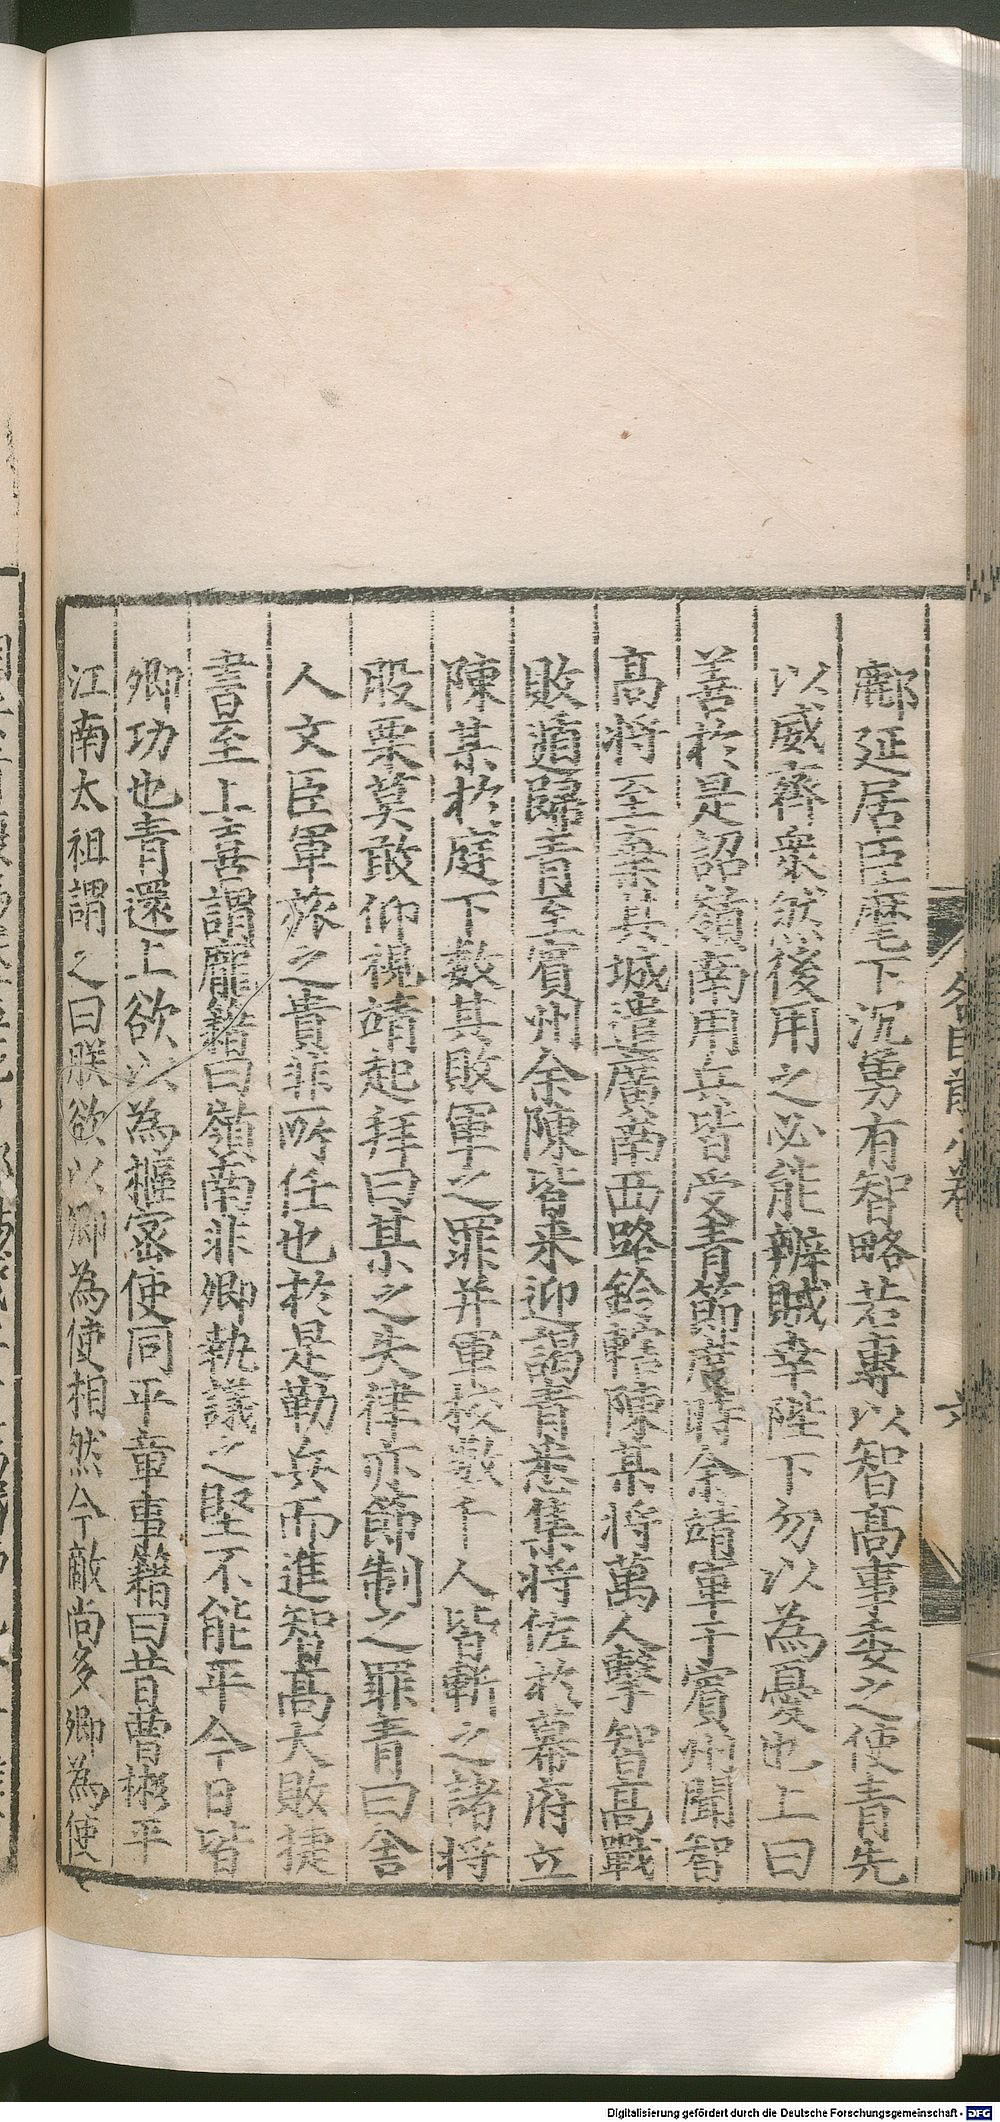 鄜延居臣麾下沉勇有智略若專以智高事委之使青先
以威齊衆然後用之必能辦賊幸陛下勿以為憂也上曰
善於是詔嶺南用兵皆受青節度時余靖軍于賓州聞智
高將至棄其城遣廣南西路鈐轄陳某將萬人擊智高戰
敗遁歸青至賓州余陳皆来迎謁青悉集將佐於幕府立
陳某於庭下數其敗軍之罪并軍校數千人皆斬之諸將
股栗莫敢仰視靖起拜曰某之失律亦節制之罪青曰舍
人文臣軍旅之責非所任也於是勒兵而進智高大敗捷
書至上喜謂龐籍曰嶺南非卿執議之堅不能平今日皆
卿功也青還上欲以為樞密使同平章事籍曰昔曹彬平
江南太祖謂之曰朕欲以卿為使相然今敵尚多卿為使
六
Digitalisierung gefördert durch die Deutsche Forschungsgemeinschaft - DFG